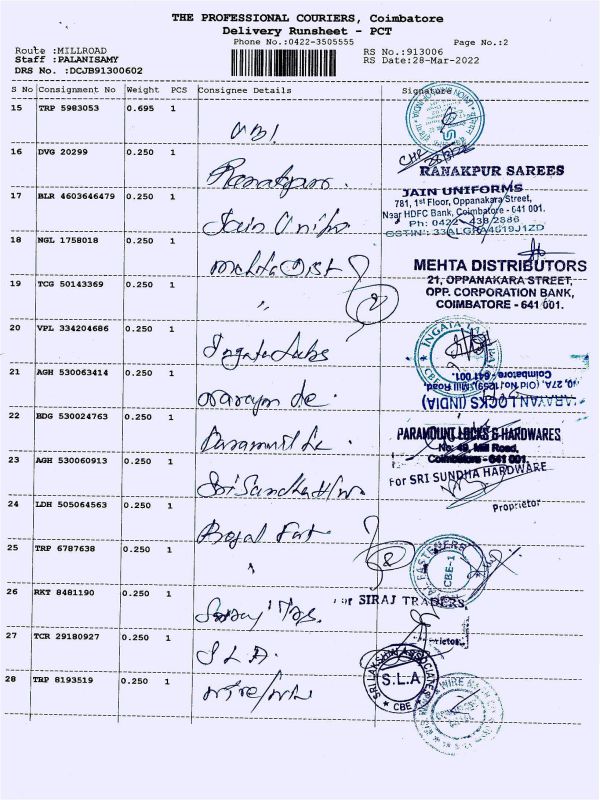 THE PROFESSIONAL COURIERS, Coimbatore
Delivery Runsheet - PCT
Phone No.:0422-3505555
Page No.:2
Route :MILLROAD
RS No.:913006
Staff :PALANISAMY
RS Date:28-Mar-2022
DRS No. :DCJB91300602
S No Consignment No Weight PCS Consignee Details Signature
15 TRP 5983053 0.695 1
UBI
16 DVG 20299 0.250 1
Ranakpur
RANAKPUR SAREES
17 BLR 4603646479 0.250 1
Jain Unifo
JAIN UNIFORMS
781, 1st Floor, Oppanakara Street,
Near HDFC Bank, Coimbatore - 641 001.
Ph: 0422 - 438 2886
18 NGL 1758018 0.250 1
Mehta Dist
MEHTA DISTRIBUTORS
21, OPPANAKARA STREET,
OPP. CORPORATION BANK,
COIMBATORE - 641 001.
19 TCG 50143369 0.250 1
" 2
20 VPL 334204686 0.250 1
Ingata Labs
INGATA
CBE
21 AGH 530063414 0.250 1
Narayan Loc
NARAYAN LOCKS (INDIA)
(Old No.1259), Mill Road,
Coimbatore - 641 001.
22 BDG 530024763 0.250 1
Paramount Lo
PARAMOUNT LOCKS & HARDWARES
Mill Road,
Coimbatore - 641 001.
23 AGH 530060913 0.250 1
Sri Sundha H/w
For SRI SUNDHA HARDWARE
Proprietor
24 LDH 505064563 0.250 1
Royal Fast
25 TRP 6787638 0.250 1
" 2
FASTENERS
CBE-1
26 RKT 8481190 0.250 1
Siraj Trs.
For SIRAJ TRADERS
Proprietor
27 TCR 29180927 0.250 1
S L A
SRI LAKSHMI ASSOCIATES
S.L.A
CBE
28 TRP 8193519 0.250 1
WIRE